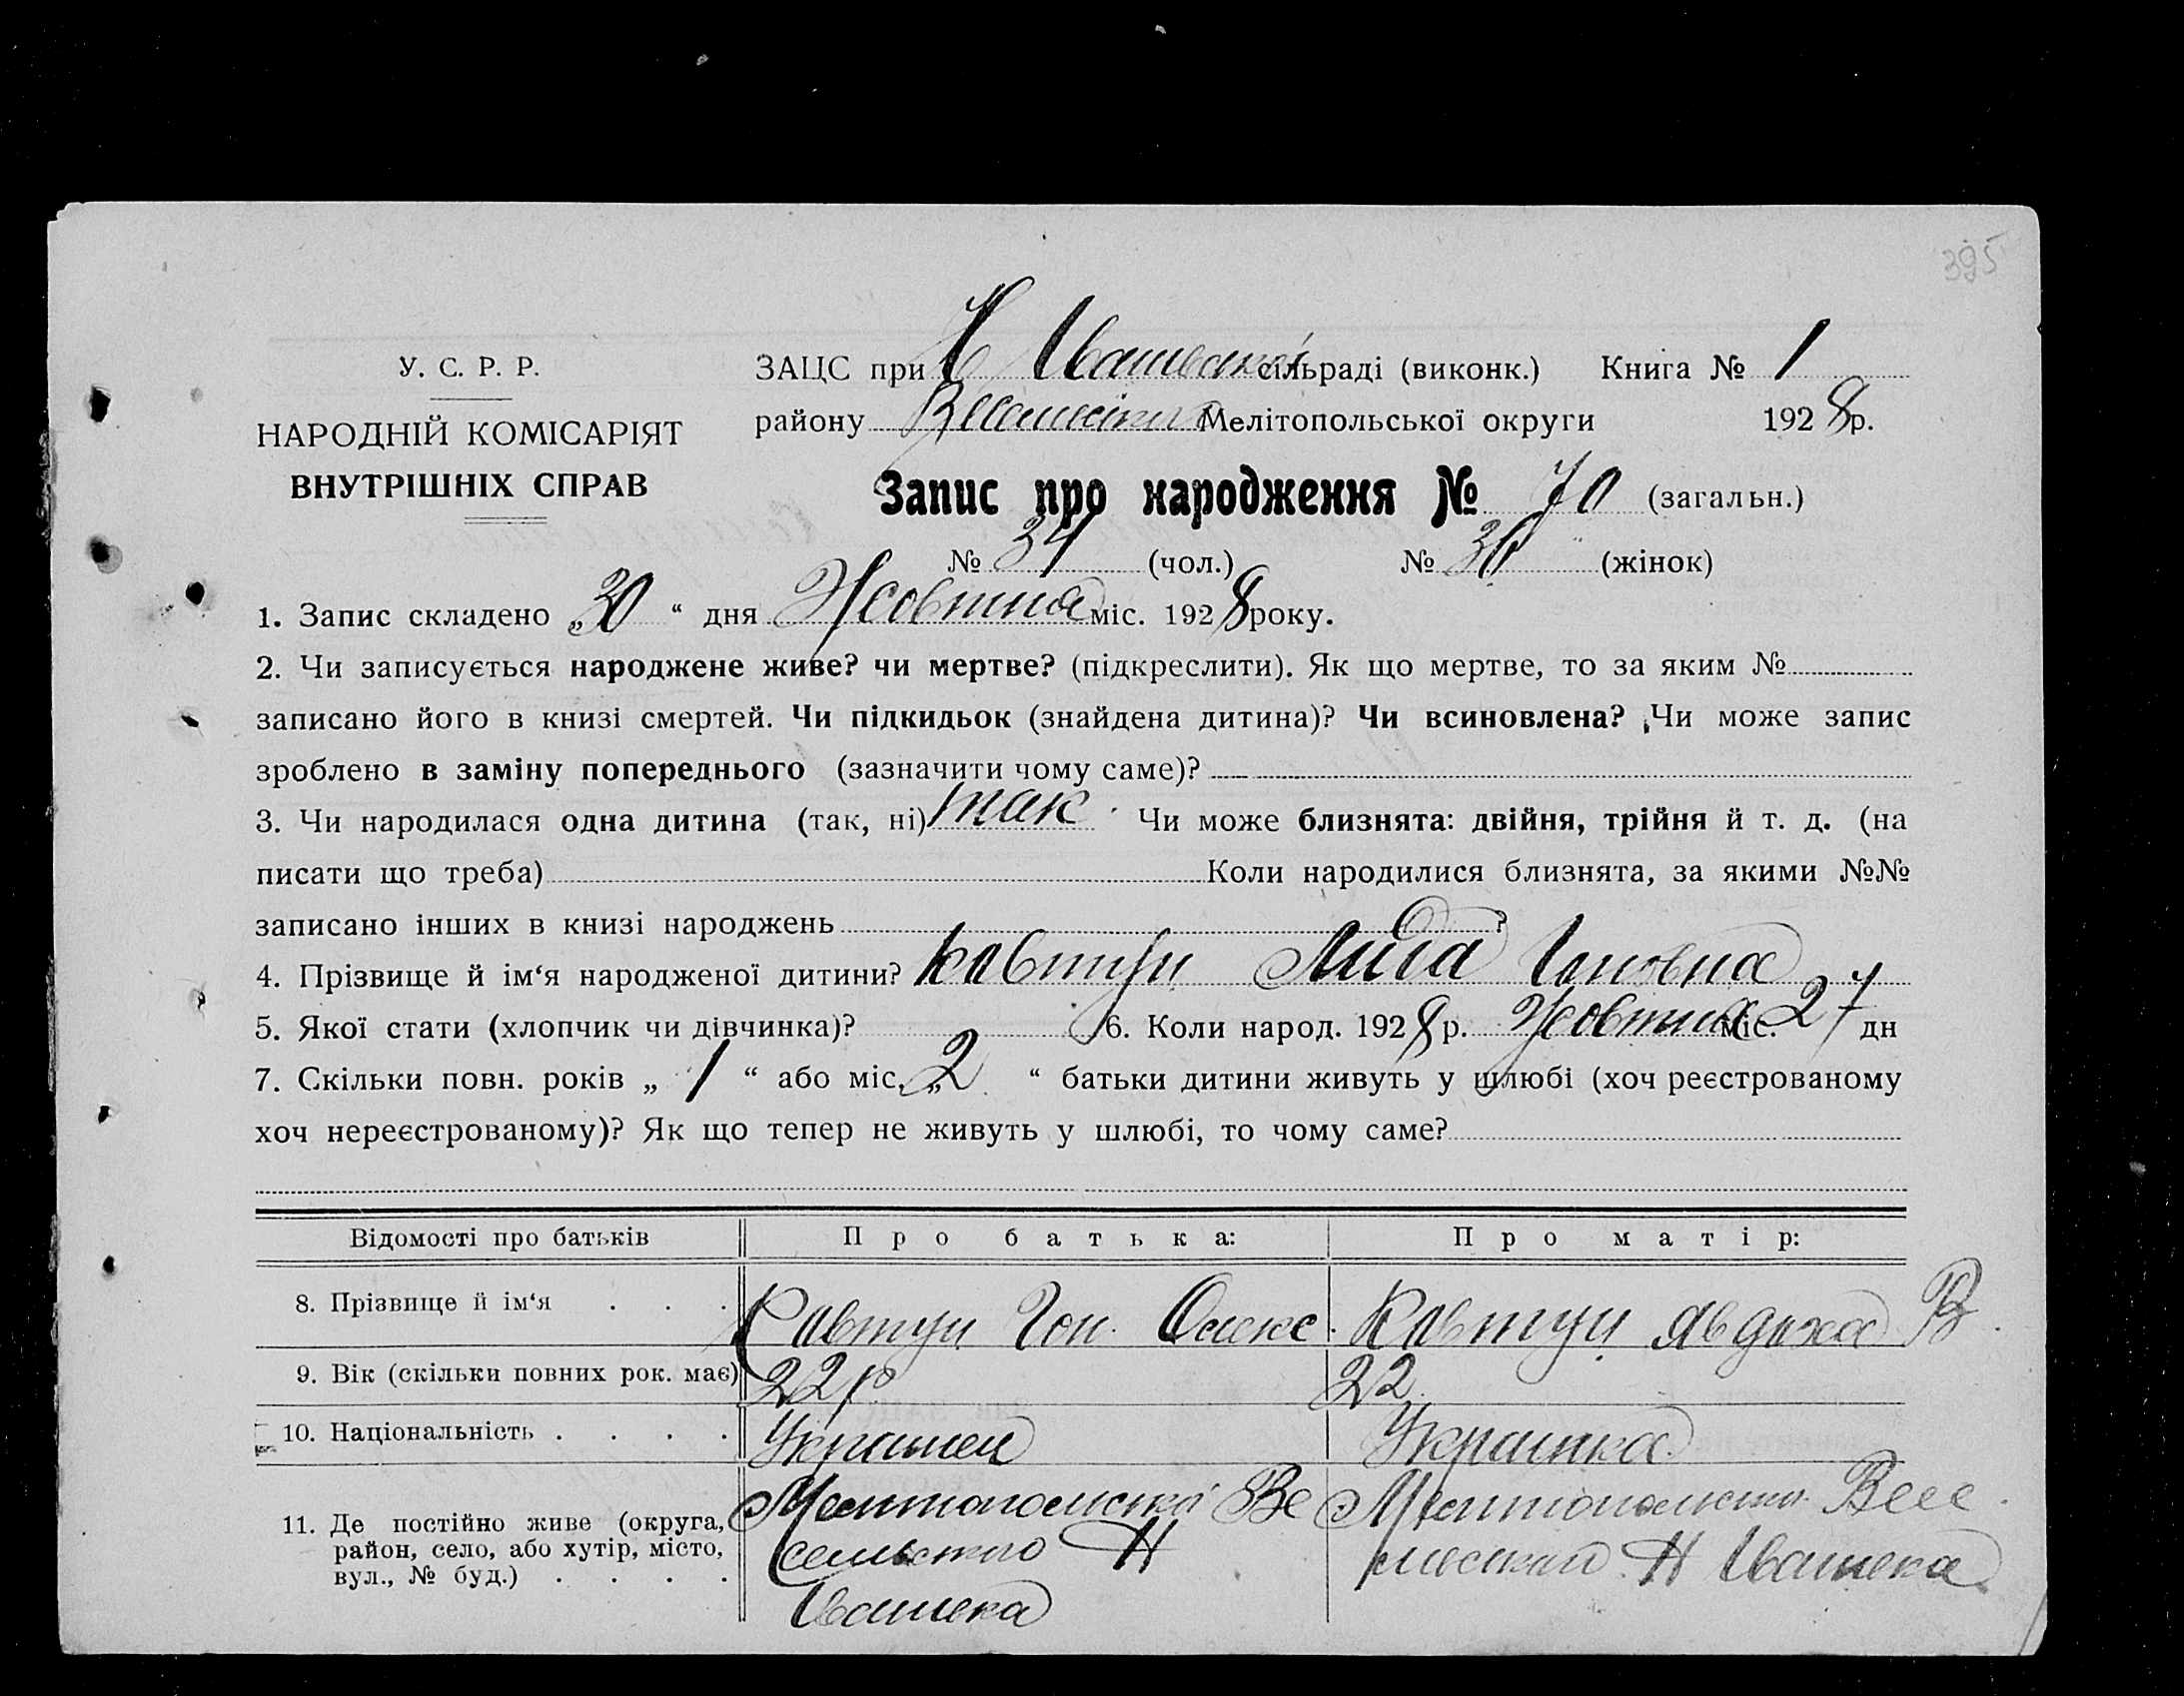 395
У. С. Р. Р.
НАРОДНІЙ КОМІСАРІЯТ
ВНУТРІШНІХ СПРАВ
ЗАЦС при Н Ивашевской сільраді (виконк.) Книга № 1
району Мелітопольської округи 1928р.
Запис про народження № 70 (загальн.)
№ 34 (чол.) № 36 (жінок)
1. Запис складено „30“ дня Жовтня міс. 1928 року.
2. Чи записується народжене живе? чи мертве? (підкреслити). Як що мертве, то за яким №
записано його в книзі смертей. Чи підкидьок (знайдена дитина)? Чи всиновлена? Чи може запис
зроблено в заміну попереднього (зазначити чому саме)?
3. Чи народилася одна дитина (так, ні) так Чи може близнята: двійня, трійня й т. д. (на
писати що треба) Коли народилися близнята, за якими №№
записано інших в книзі народжень ?
4. Прізвище й ім‘я народженої дитини? Ковтун Лида
5. Якої стати (хлопчик чи дівчинка)? 6. Коли народ. 1928 р. Жовтня міс. 27 дн
7. Скільки повн. років „ 1 “ або міс. „ 2 “ батьки дитини живуть у шлюбі (хоч реєстрованому
хоч нереєстрованому)? Як що тепер не живуть у шлюбі, то чому саме?
Відомості про батьків Про батька: Про матір:
8. Прізвище й ім‘я . . . Ковтун Олекс. Ковтун Явдоха В.
9. Вік (скільки повних рок. має) 22р 22
10. Національність . . . . Украинец Украинка
11. Де постійно живе (округа,
район, село, або хутір, місто,
вул., № буд.) . . . .
Мелитопольской Ве
сельского Н
Ивашека
Весе
Н Ивашека